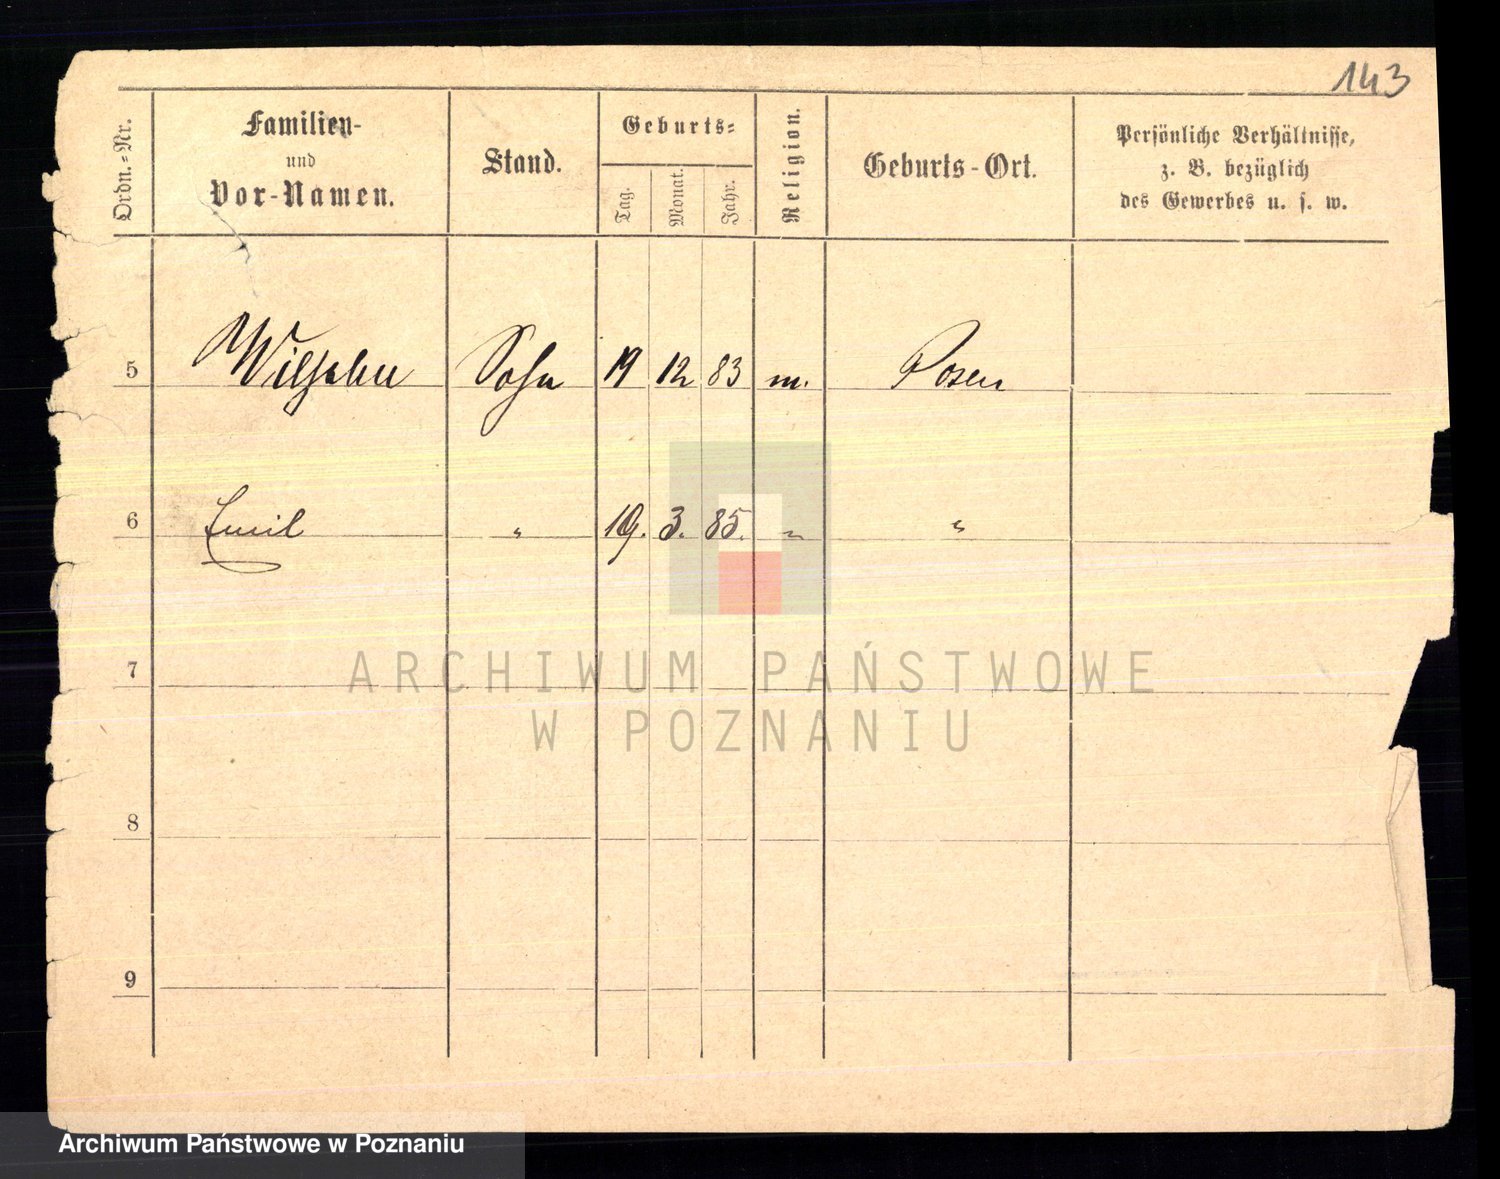 143
Ordn.-Nr.
Familien-
und
Vor-Namen.
Stand.
Geburts-
Tag.
Monat.
Jahr.
Religion.
Geburts-Ort.
Persönliche Verhältnisse,
z. B. bezüglich
des Gewerbes u. s. w.
5 Wilhelm Sohn 19 12 83 m. Posen
6 Emil " 19. 3. 85. " "
7
8
9
ARCHIWUM PAŃSTWOWE
W POZNANIU
Archiwum Państwowe w Poznaniu